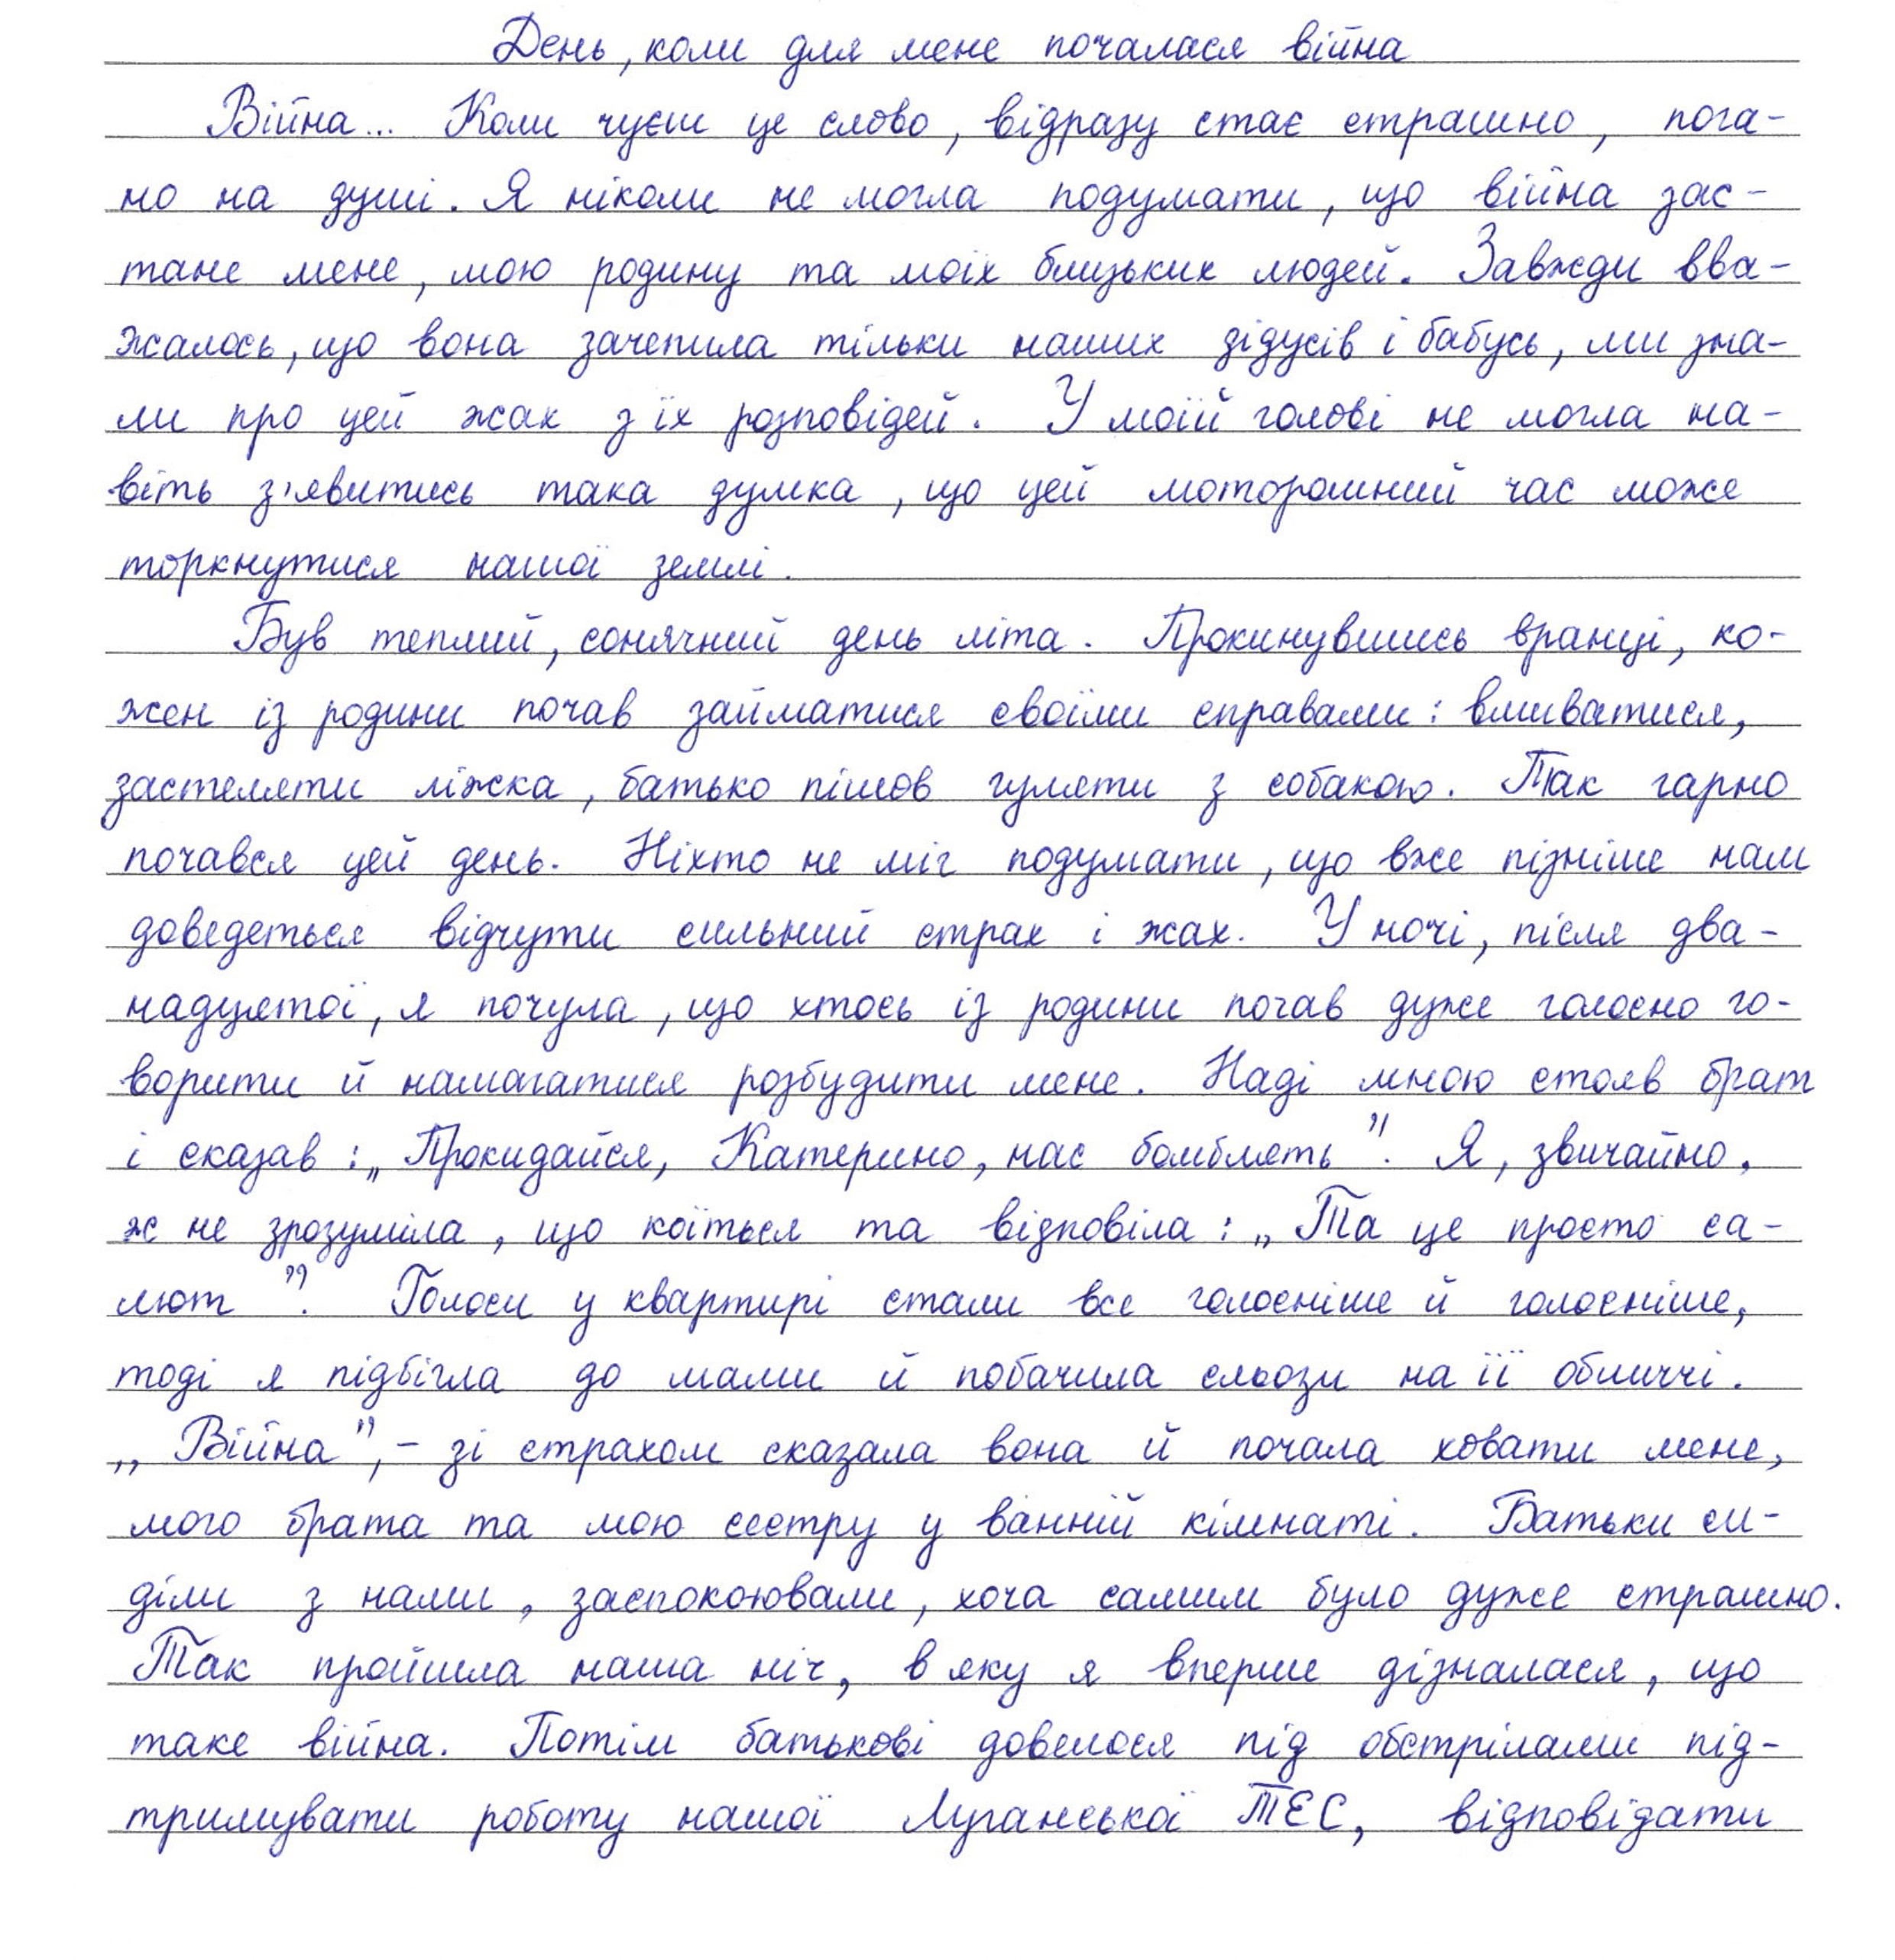 День, коли для мене почалася війна
Війна... Коли чуєш це слово, відразу стає страшно, пога-
но на душі. Я ніколи не могла подумати, що війна зас-
тане мене, мою родину та моїх близьких людей. Завжди вва-
жалось, що вона зачепила тільки наших дідусів і бабусь, ми зна-
ли про цей жах з їх розповідей. У моїй голові не могла на-
віть з'явитись така думка, що цей моторошний час може
торкнутися нашої землі.
Був теплий, сонячний день літа. Прокинувшись вранці, ко-
жен із родини почав займатися своїми справами: вмиватися,
застеляти ліжка, батько пішов гуляти з собакою. Так гарно
почався цей день. Ніхто не міг подумати, що вже пізніше нам
доведеться відчути сильний страх і жах. У ночі, після два-
надцятої, я почула, що хтось із родини почав дуже голосно го-
ворити й намагатися розбудити мене. Наді мною стояв брат
і сказав: „Прокидайся, Катерино, нас бомблять". Я, звичайно,
ж не зрозуміла, що коїться та відповіла: „Та це просто са-
лют". Голоси у квартирі стали все голосніше й голосніше,
тоді я підбігла до мами й побачила сльози на її обличчі.
„Війна", - зі страхом сказала вона й почала ховати мене,
мого брата та мою сестру у ванній кімнаті. Батьки си-
діли з нами, заспокоювали, хоча самим було дуже страшно.
Так пройшла наша ніч, в яку я вперше дізналася, що
таке війна. Потім батькові довелося під обстрілами під-
тримувати роботу нашої Луганської ТЕС, відповідати